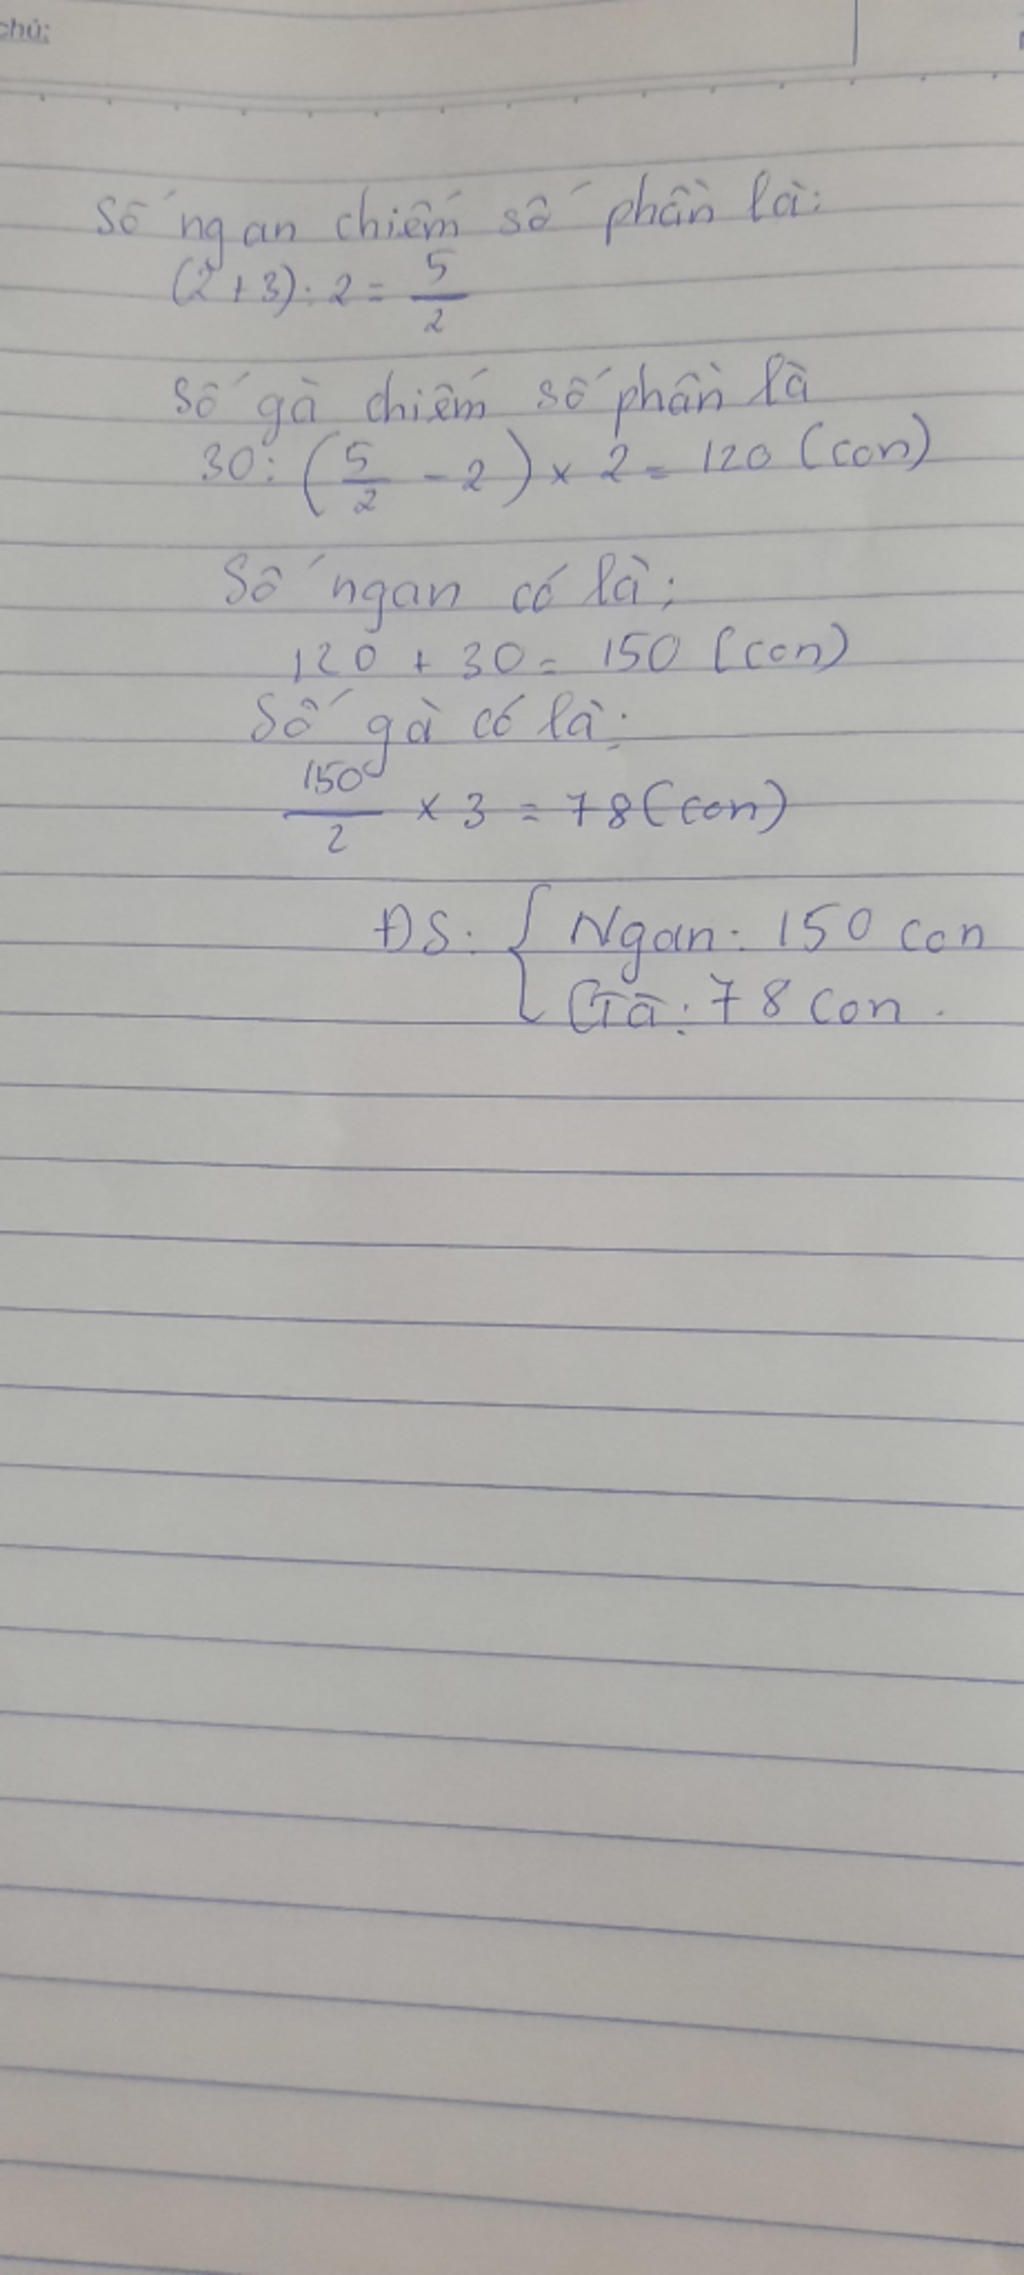 chú:
Số ngan chiếm số phần là:
(2+3):2 = 5/2
Số gà chiếm số phần là
30: (5/2 - 2) × 2 = 120 (con)
Số ngan có là:
120 + 30 = 150 (con)
Số gà có là:
150/2 × 3 = 78 (con)
ĐS: { Ngan: 150 con
Gà: 78 con.